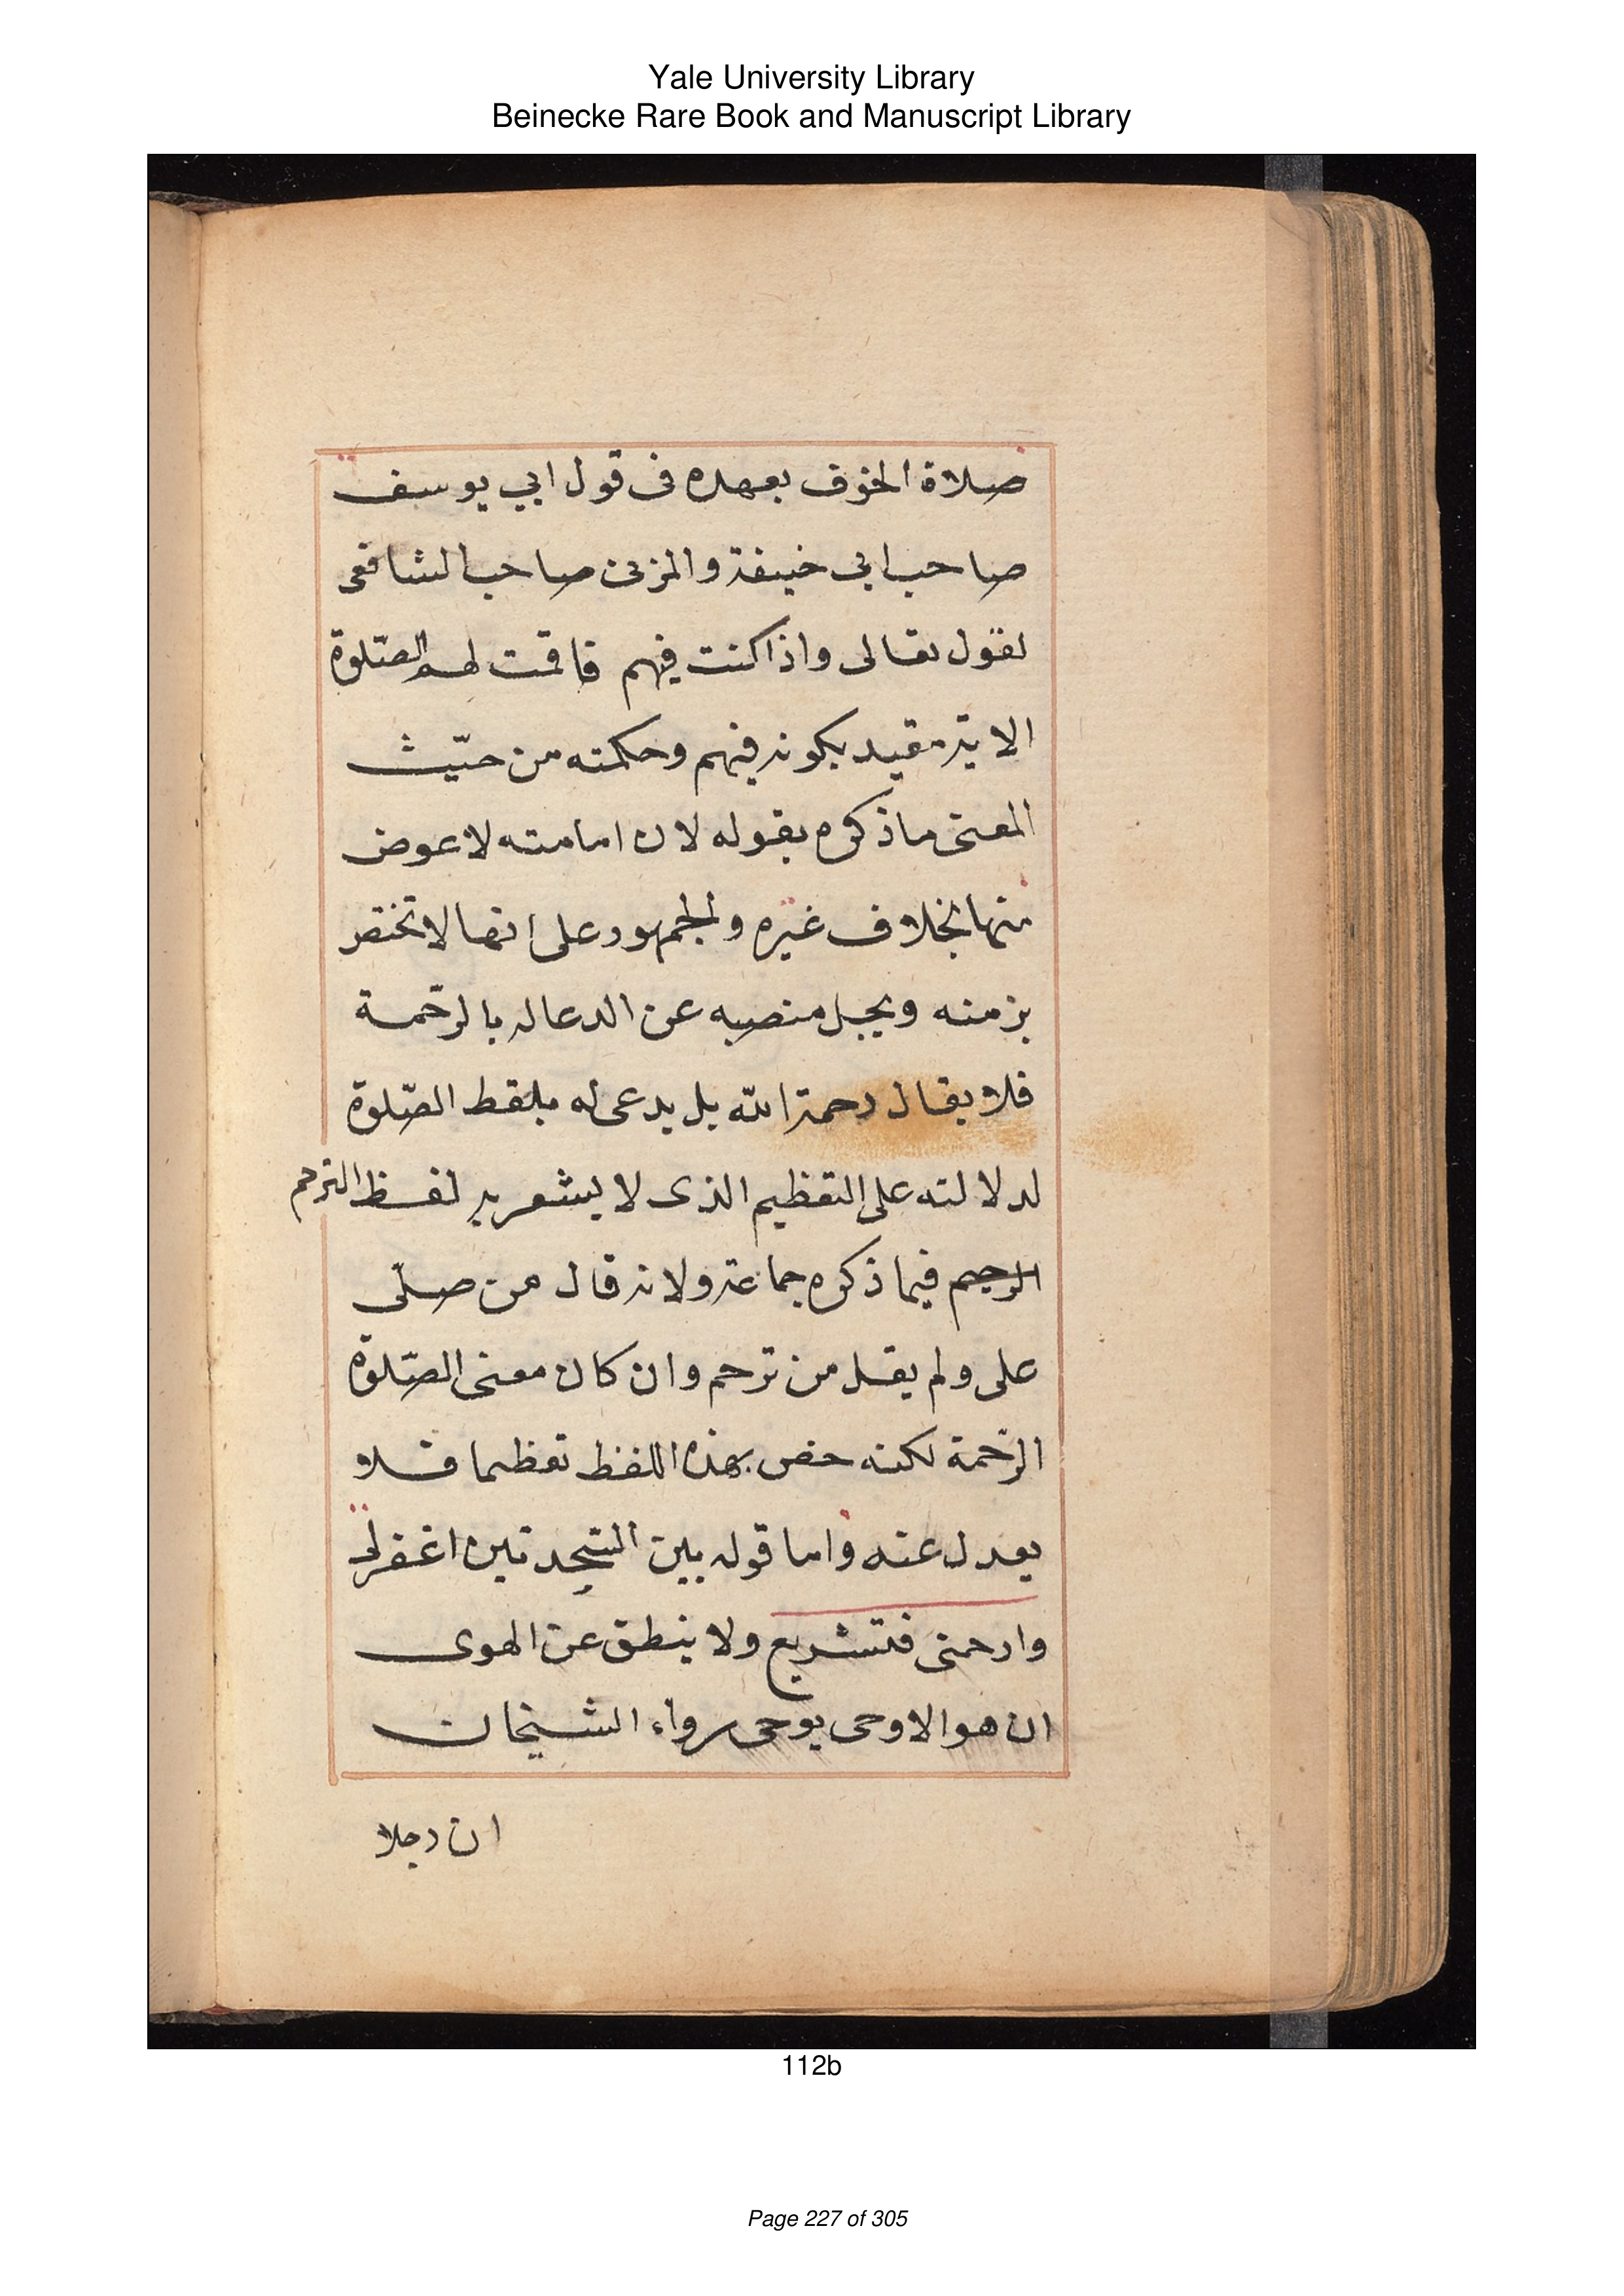 Yale University Library
Beinecke Rare Book and Manuscript Library
صلاة الخوف بعهده فى قول ابي يوسف
صاحب ابى خيفة والمزنى صاحب الشافعى
لقول تعالى واذا كنت فيهم فاقمت لهم الصّلوة
الاية مقيد بكونه فيهم وحكمته من حيّث
المعنى ماذكره بقوله لان امامته لا عوض
منها بخلاف غيره والجمهور على انها لا تختص
بزمنه ويجل منصبه عن الدعاله بالرّحمة
فلا يقال رحمة الله بل يدعى له بلفظ الصّلوة
لدلالته على التعظيم الذى لا يشعر به لفظ الترحم
الرحيم فيما ذكره جماعة ولانه قال من صلّى
على ولم يقل من ترحم وان كان معنى الصّلوة
الرّحمة لكنه خص بهذه اللفظ تعظيما فلا
يعدل عنه واما قوله بين السّجدتين اغفرلى
وارحمنى فتشريع ولا ينطق عن الهوى
ان هو الا وحى يوحى رواء الشيخان
ان رجلا
112b
Page 227 of 305